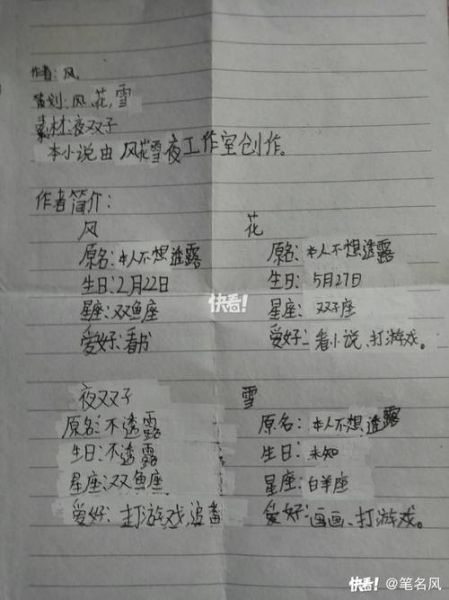 作者:风
策划:风、花,雪
素材:夜双子
本小说由风花雪夜工作室创作。
作者简介:
风
原名:本人不想透露
生日:2月22日
星座:双鱼座
爱好:看书
花
原名:本人不想透露
生日:5月27日
星座:双子座
爱好:看小说、打游戏。
快看!
夜双子
原名:不透露
生日:不透露
星座:双鱼座
爱好:打游戏,追番
雪
原名:本人不想透露
生日:未知
星座:白羊座
爱好:画画、打游戏。
快看! @笔名风